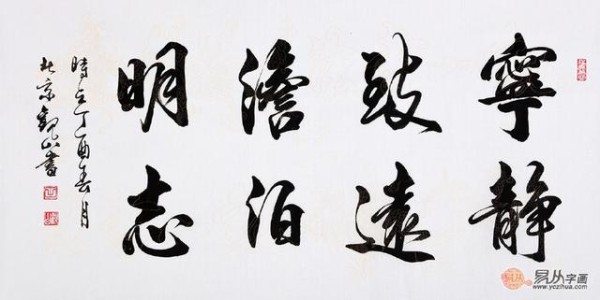 寧靜
致遠
澹泊
明志
時在丁酉春月
北京觀山書
易从字画
www.yczihua.com